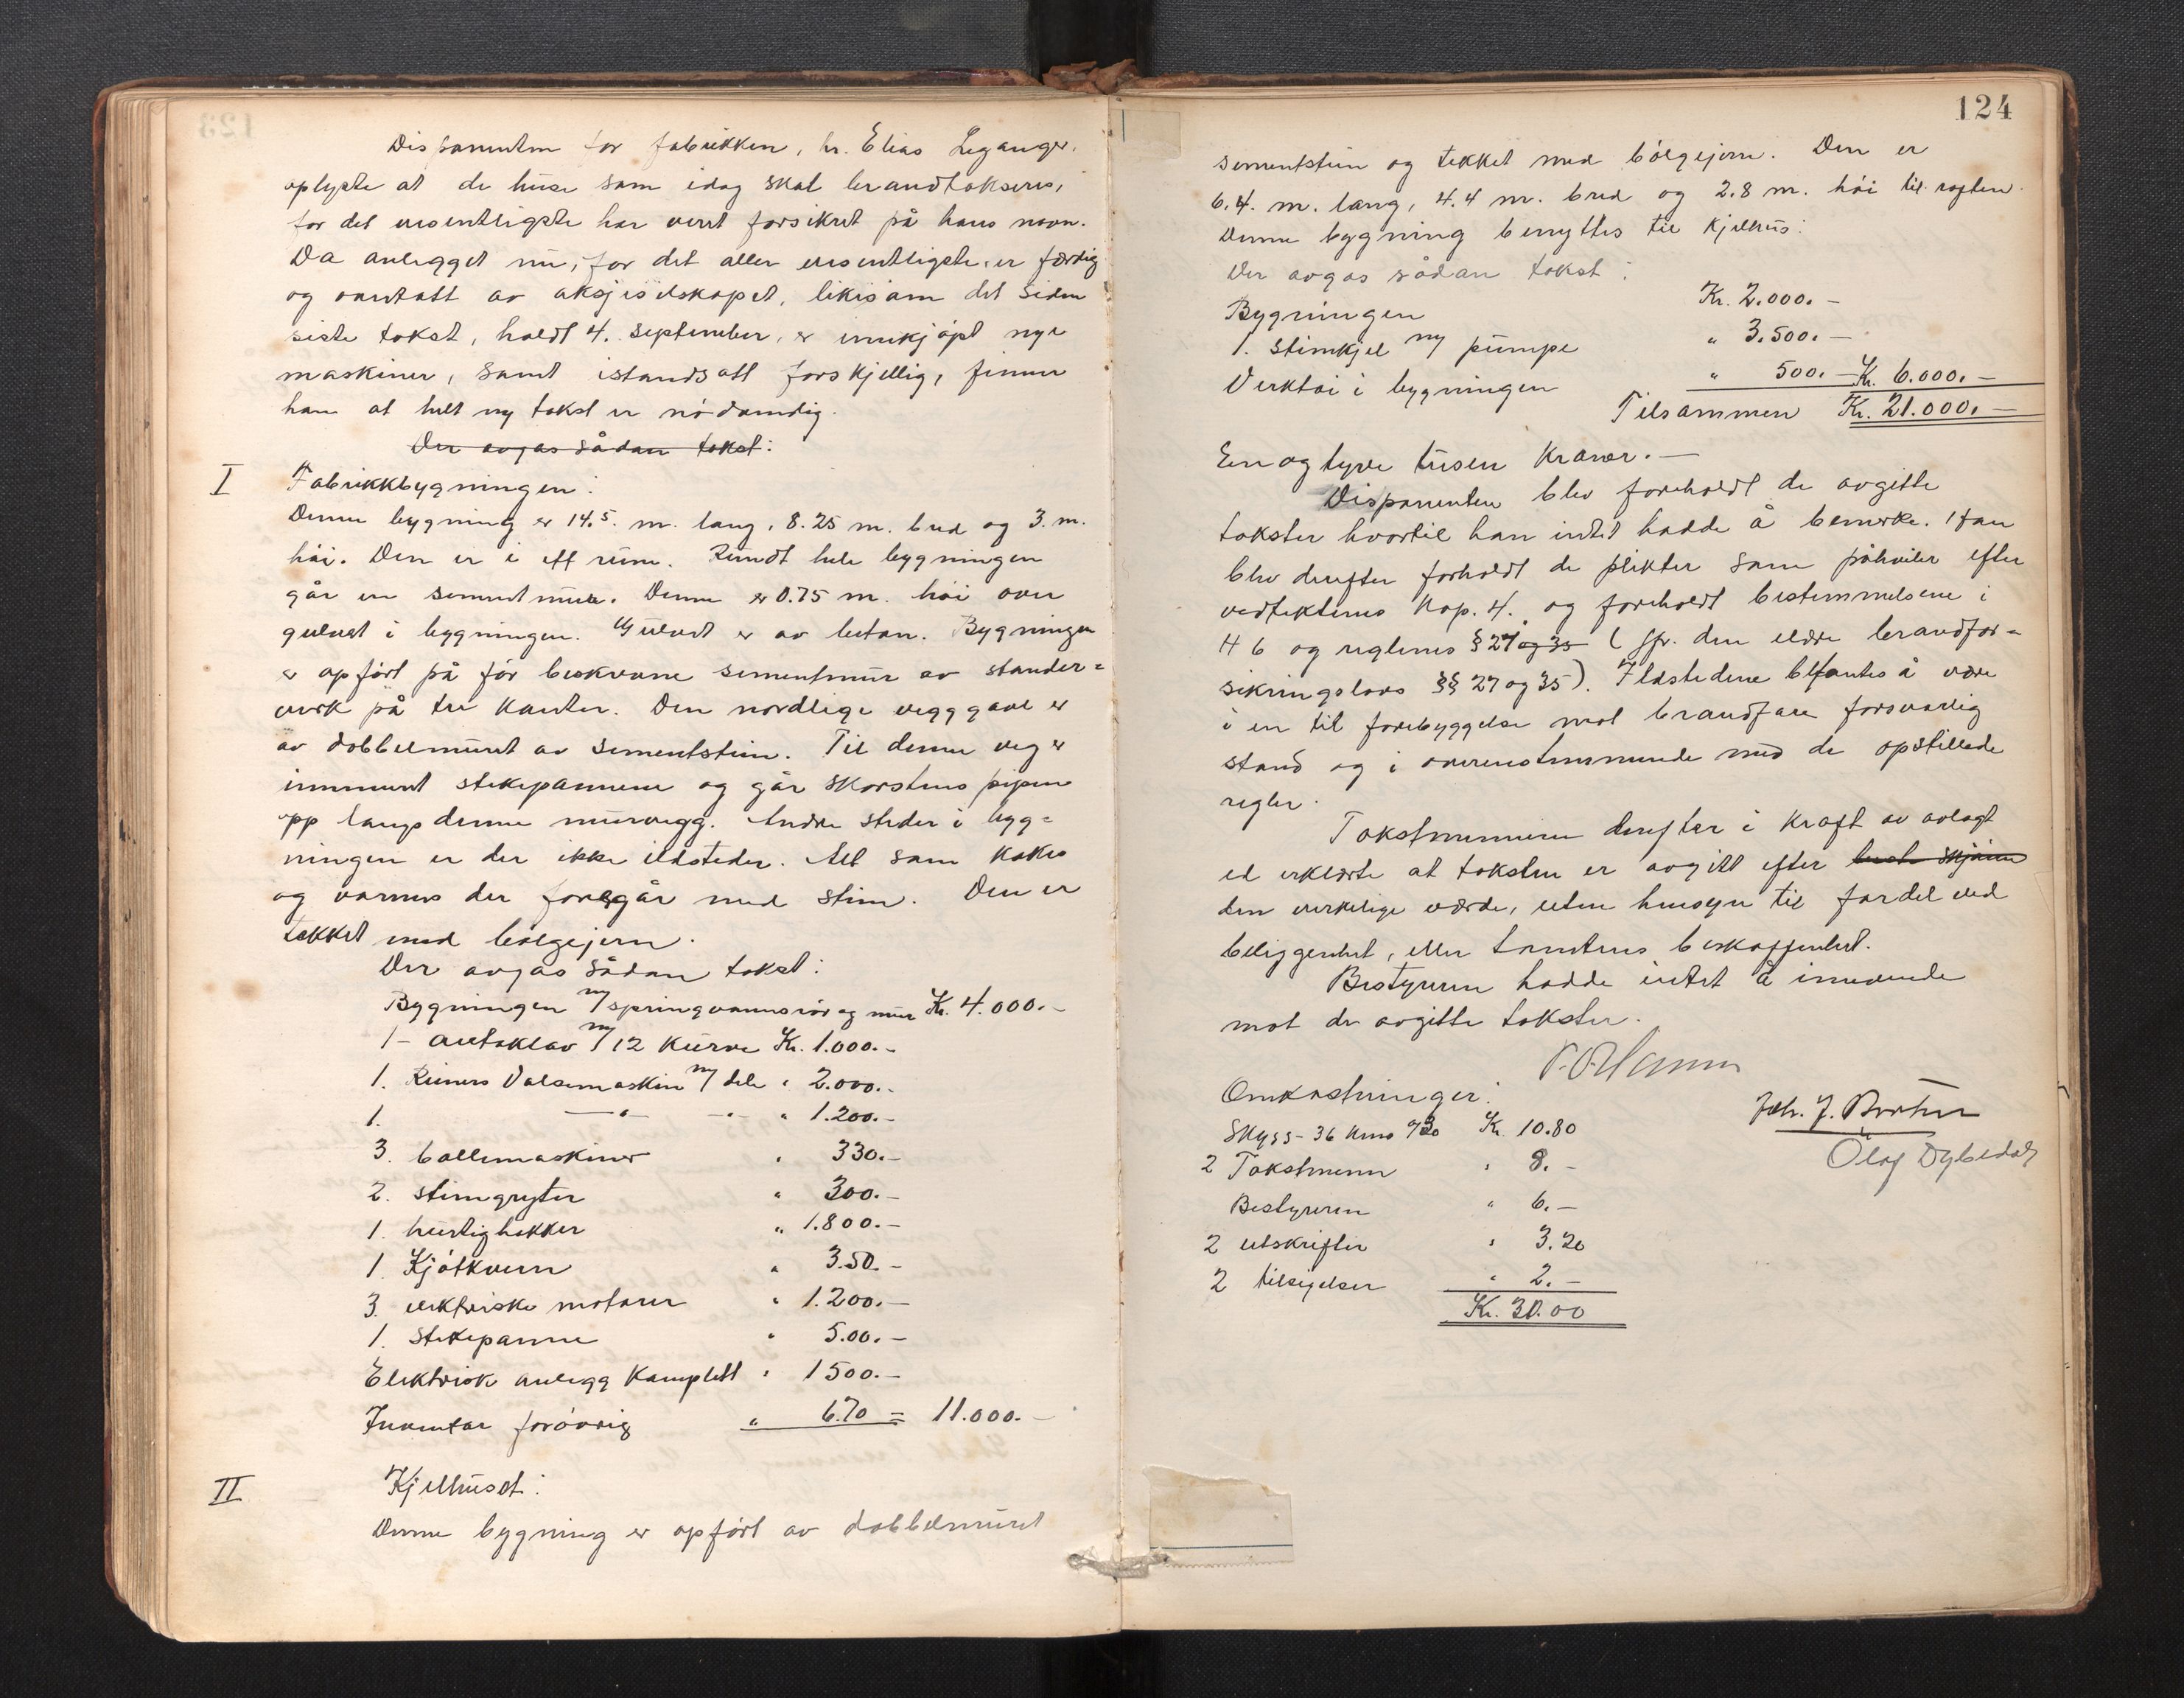 Disponenten for fabrikken, hr. Elias Leganger,
oplyste at de huse som idag skal brandtakseres,
for det vesentligste har vert forsikret på hans navn.
Da anlegget nu, for det aller vesentligste, er færdig
og overtatt av aksjeselskapet, likesom det siden
siste takst, holdt 4. september, er innkjøpt nye
maskiner, samt istandsatt forskjellig, finner
han at helt ny takst er nødvendig.
Der avgas sådan takst:
I Fabrikkbygningen:
Denne bygning er 14.5. m. lang, 8.25 m. bred og 3. m.
høi. Den er i ett rum. Rundt hele bygningen
går en sementmur. Denne er 0.75 m. høi over
gulvet i bygningen. Gulvet er av beton. Bygningen
er opført på før beskrevne sementmur av stander=
verk på tre kanter. Den nordlige vegg gavl er
av dobbelmuret av sementstein. Til denne veg er
innmuret stekepannene og går skorstens pipen
opp langs denne murvegg. Andre steder i byg=
ningen er der ikke ildsteder. Alt som kokes
og varmes der foregår med stim. Den er
tekket med bølgejern.
Der avgas sådan takst:
Bygningen m/ springvannsrør og mur Kr. 4.000.-
1- autoklav m/ 12 kurve Kr. 1.000.-
1. Reiners Valsemaskin m/ dele " 2.000.-
1. -"- -"- " 1.200.-
3. bollemaskiner " 330.-
2. stimgryter " 300.-
1. hurtighakker " 1.800.-
1. Kjøtkvern " 350.-
3. elektriske motorer " 1.200.-
1. Stekepanne " 500.-
Elektrisk anlegg komplett " 1500.-
Inventar forøvrig " 670 = 11.000.-
II Kjelhuset:
Denne bygning er opført av dobbelmuret
124
sementstein og tekket med bølgejern. Den er
6.4. m. lang, 4.4 m. bred og 2.8 m. høi til raften.
Denne bygning benyttes til kjelhus:
Der avgas sådan takst:
Bygningen Kr. 2.000.-
1. stimkjel m/ pumpe " 3.500.-
Verktøi i bygningen " 500.- Kr. 6.000.-
Tilsammen Kr. 21.000.-
En og tyve tusen kroner.-
Disponenten blev foreholdt de avgitte
takster hvortil han intet hadde å bemerke. Han
blev derefter forholdt de plikter som påhviler efter
vedtektenes Kap. 4. og foreholdt bestemmelsene i
46 og reglenes § 27 og 35 (jfr. den eldre brandfor=
sikringslovs §§ 27 og 35). Ildstedene befantes å være
i en til forebyggelse mot brandfare forsvarlig
stand og i overenstemmende med de opstillede
regler.
Takstmennene derefter i kraft av avlagt
ed erklærte at taksten er avgitt efter beste skjønn
den virkelige værde, uten hensyn til fordel ved
beliggenhet, eller tomtens beskaffenhet.
Bestyreren hadde intet å innvende
mot de avgitte takster.
Omkostninger:
Joh. J.
Skyss- 36 kms 7/30 Kr. 10.80
Olaf Dybedal
2 Takstmenn " 8.-
Bestyreren " 6.-
2 utskrifter " 3.20
2 tilsigelser " 2.-
Kr. 30.00